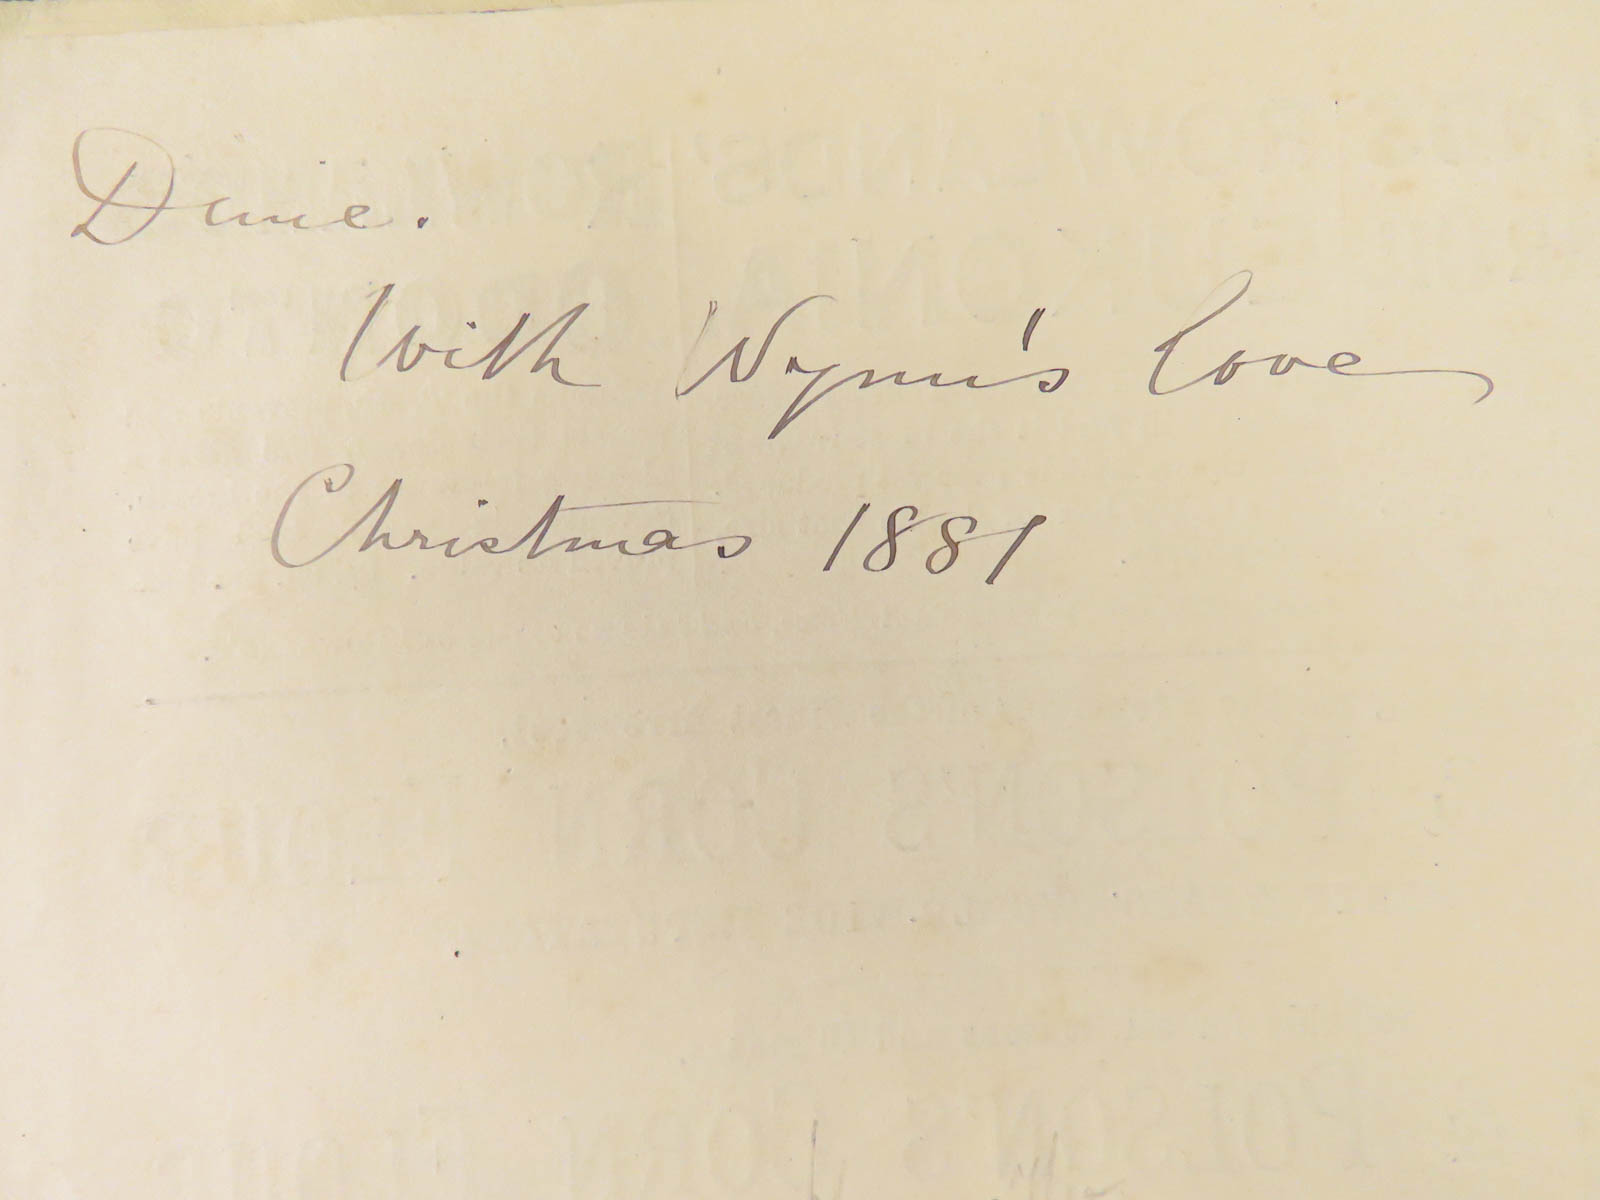 With Wynn's love
Christmas 1881